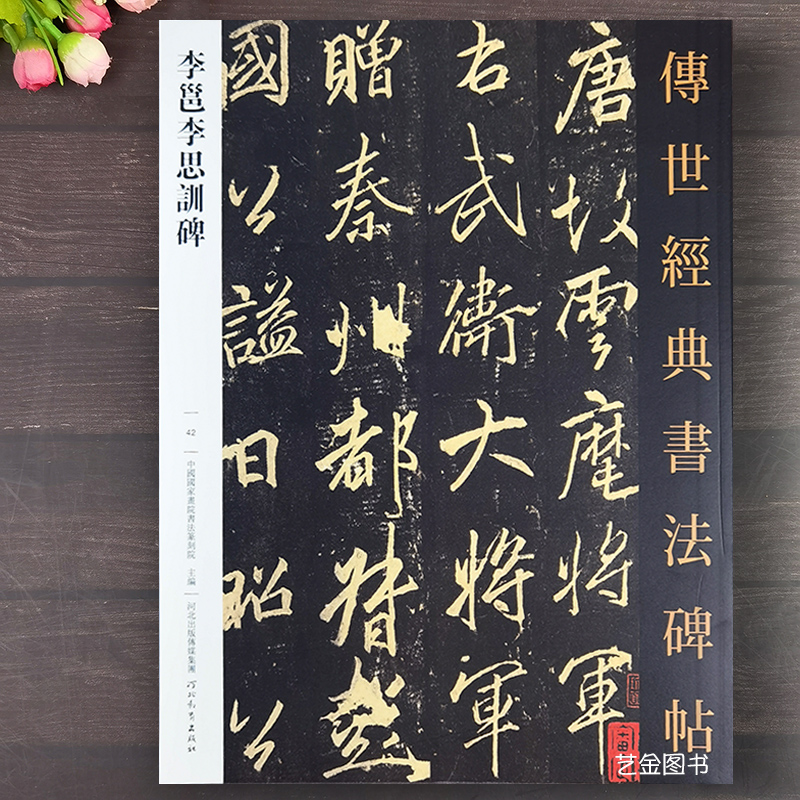 傳世經典書法碑帖
唐故雲麾將軍
右武衛大將軍
贈秦州都督彭
國公謚曰昭公
李邕李思訓碑
42
中國國家畫院書法篆刻院 主編
河北出版傳媒集團
河北教育出版社
艺金图书